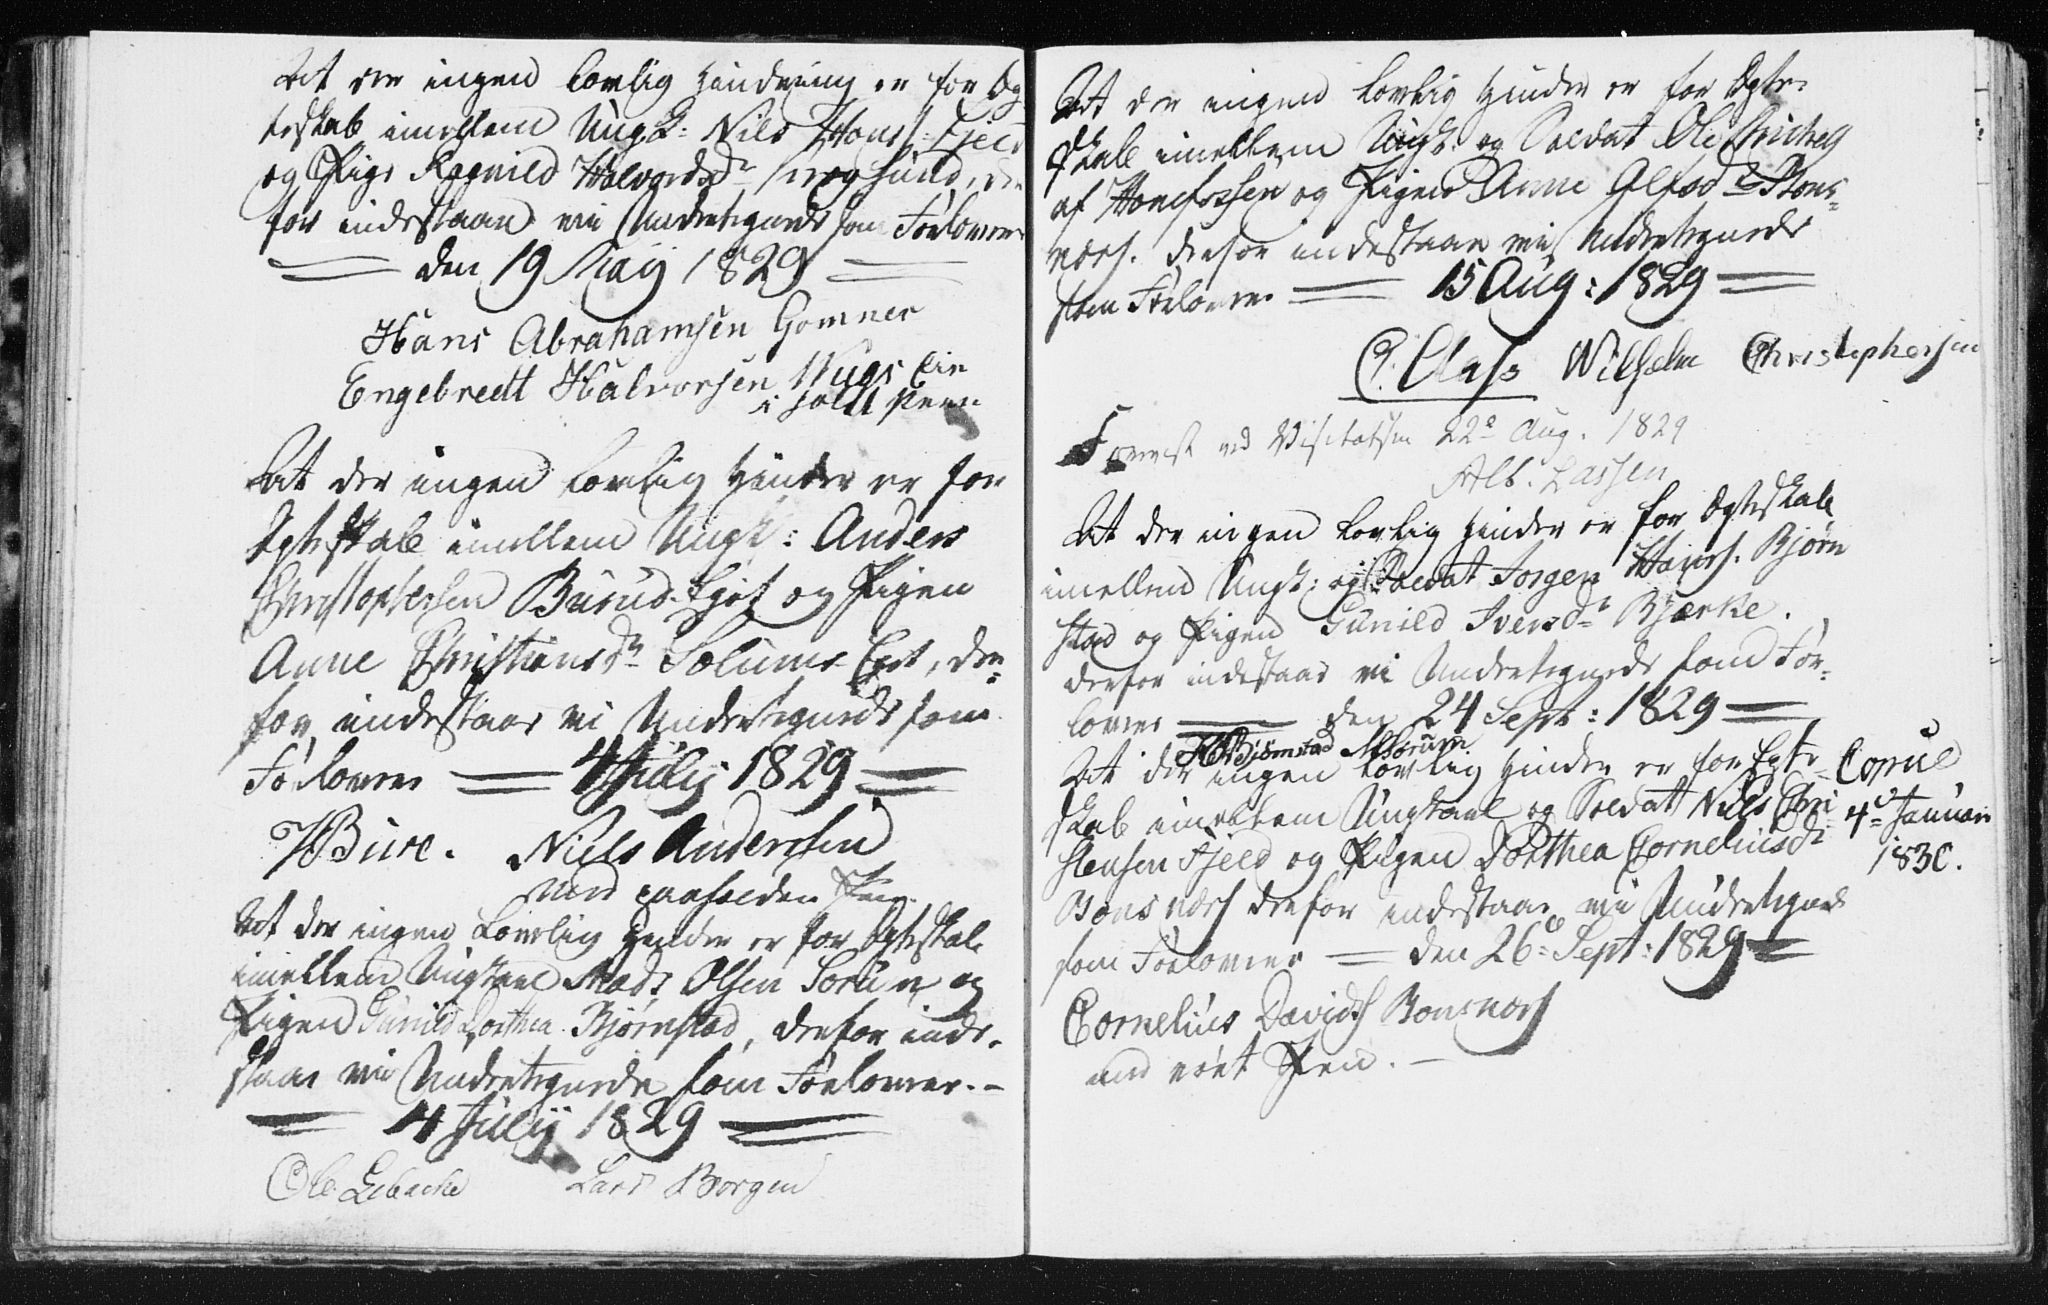 At der ingen lovlig Hindring er for Æg
teskab imellem Ungk: Nils Hans: Fjeld
og Pige Ragnild Halvorsdr Krogsund, der
for indestaae vi Undertegnede som Forlovere
den 19 Maÿ 1829
Hans Abrahamsen Gomner
Engebrecht Halvorsen
i holdt Penn
At der ingen lovlig Hinder er for
Ægteskab imellem Ungk: Anders
Christophersen Burud-Ejet og Pigen
Anne Christiansdr Solums Eyet, der=
for indestaae vi Undertegnede som
Forlovere 4 Julij 1829
Bure. Niels Andersen
med paaholden Pen.
At der ingen Lovlig Hinder er for Ægteskab
imellem Ungkarl Mads Olsen Sorum og
Pigen Gunild Dorthea Bjørnstad, derfor inde=
staae vi Undertegnede som Forlovere.
4 Julij 1829
Ole Lebache Lars Borgen
At der ingen lovlig Hinder er for Ægte=
skab imellem Ungk: og Soldat Ole
af Honefossen og Pigen Anne Olsdr Bons=
næss. derfor indestaae vi Undertegnede
som Forlovere 15 Aug: 1829
C. Wilhelm Christophersen
Foreviist ved Visitatsen 22de Aug. 1829
Alb. Lassen
At der ingen lovlig Hinder er for Ægteskab
imellem Ungk: og Soldat Jorgen Hanss. Bjørn
stad og Pigen Gunild Iversdr Bjærke.
derfor indestaae vi Undertegnede som For=
lovere den 24 Sept: 1829
Biørnstad MSorum
At der ingen lovlig Hinder er for Egte= Copul
skab imellem Ungkarl og Soldat Niels Chri 4de Januari
stensen Fjeld og Pigen Dorthea Corneliusdr 1830.
Bonsnæss derfor indestaae vi Undertegnede
som Forlovere den 26de Sept: 1829
Cornelius Davids Bonsnæss
med ført Pen.